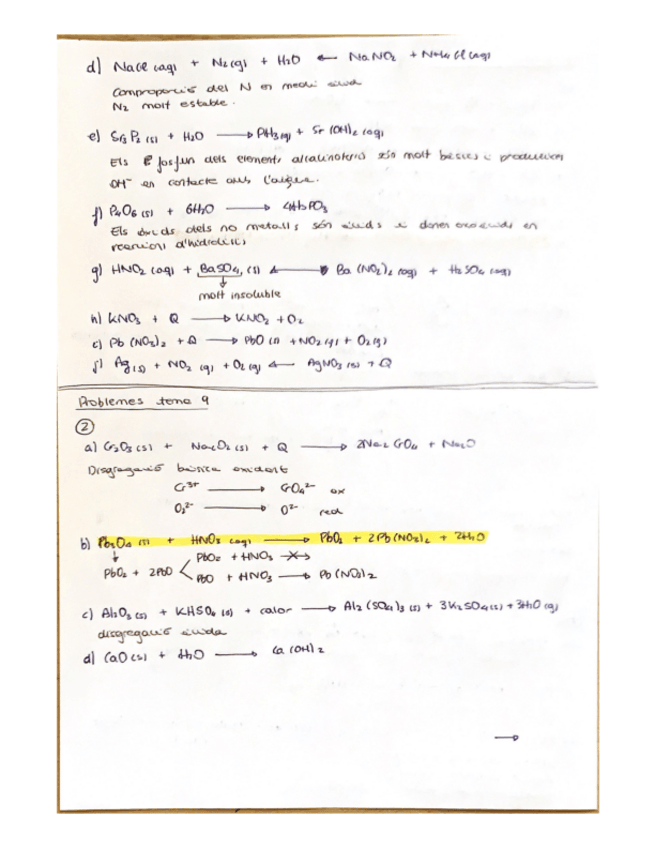 d) NaCl (aq) + N2 (g) + H2O ← NaNO2 + NH4Cl (aq)
Comproporció del N en medi àcid
N2 molt estable.
e) Sr3P2 (s) + H2O → PH3 (g) + Sr(OH)2 (aq)
Els fosfurs dels elements alcalinoterris són molt bàsics i produeixen
OH⁻ en contacte amb l'aigua.
f) P4O6 (s) + 6H2O → 4H3PO3
Els òxids dels no metalls són àcids i donen oxoàcids en
reaccions d'hidròlisi
g) HNO2 (aq) + BaSO4 (s) ← Ba(NO2)2 (aq) + H2SO4 (aq)
↓
molt insoluble
h) KNO3 + Q → KNO2 + O2
i) Pb(NO3)2 + Q → PbO (s) + NO2 (g) + O2 (g)
j) Ag (s) + NO2 (g) + O2 (g) ← AgNO3 (s) + Q
Problemes tema 9
②
a) Cr2O3 (s) + Na2O2 (s) + Q → 2Na2CrO4 + Na2O
Disgregació bàsica oxidant
Cr³⁺ → CrO4²⁻ ox
O2²⁻ → O²⁻ red
b) Pb3O4 (s) + HNO3 (aq) → PbO2 + 2Pb(NO3)2 + 2H2O
↓ PbO2 + HNO3 -X→
PbO2 + 2PbO < PbO + HNO3 → Pb(NO3)2
c) Al2O3 (s) + KHSO4 (s) + calor → Al2(SO4)3 (s) + 3K2SO4 (s) + 3H2O (g)
disgregació àcida
d) CaO (s) + H2O → Ca(OH)2
→